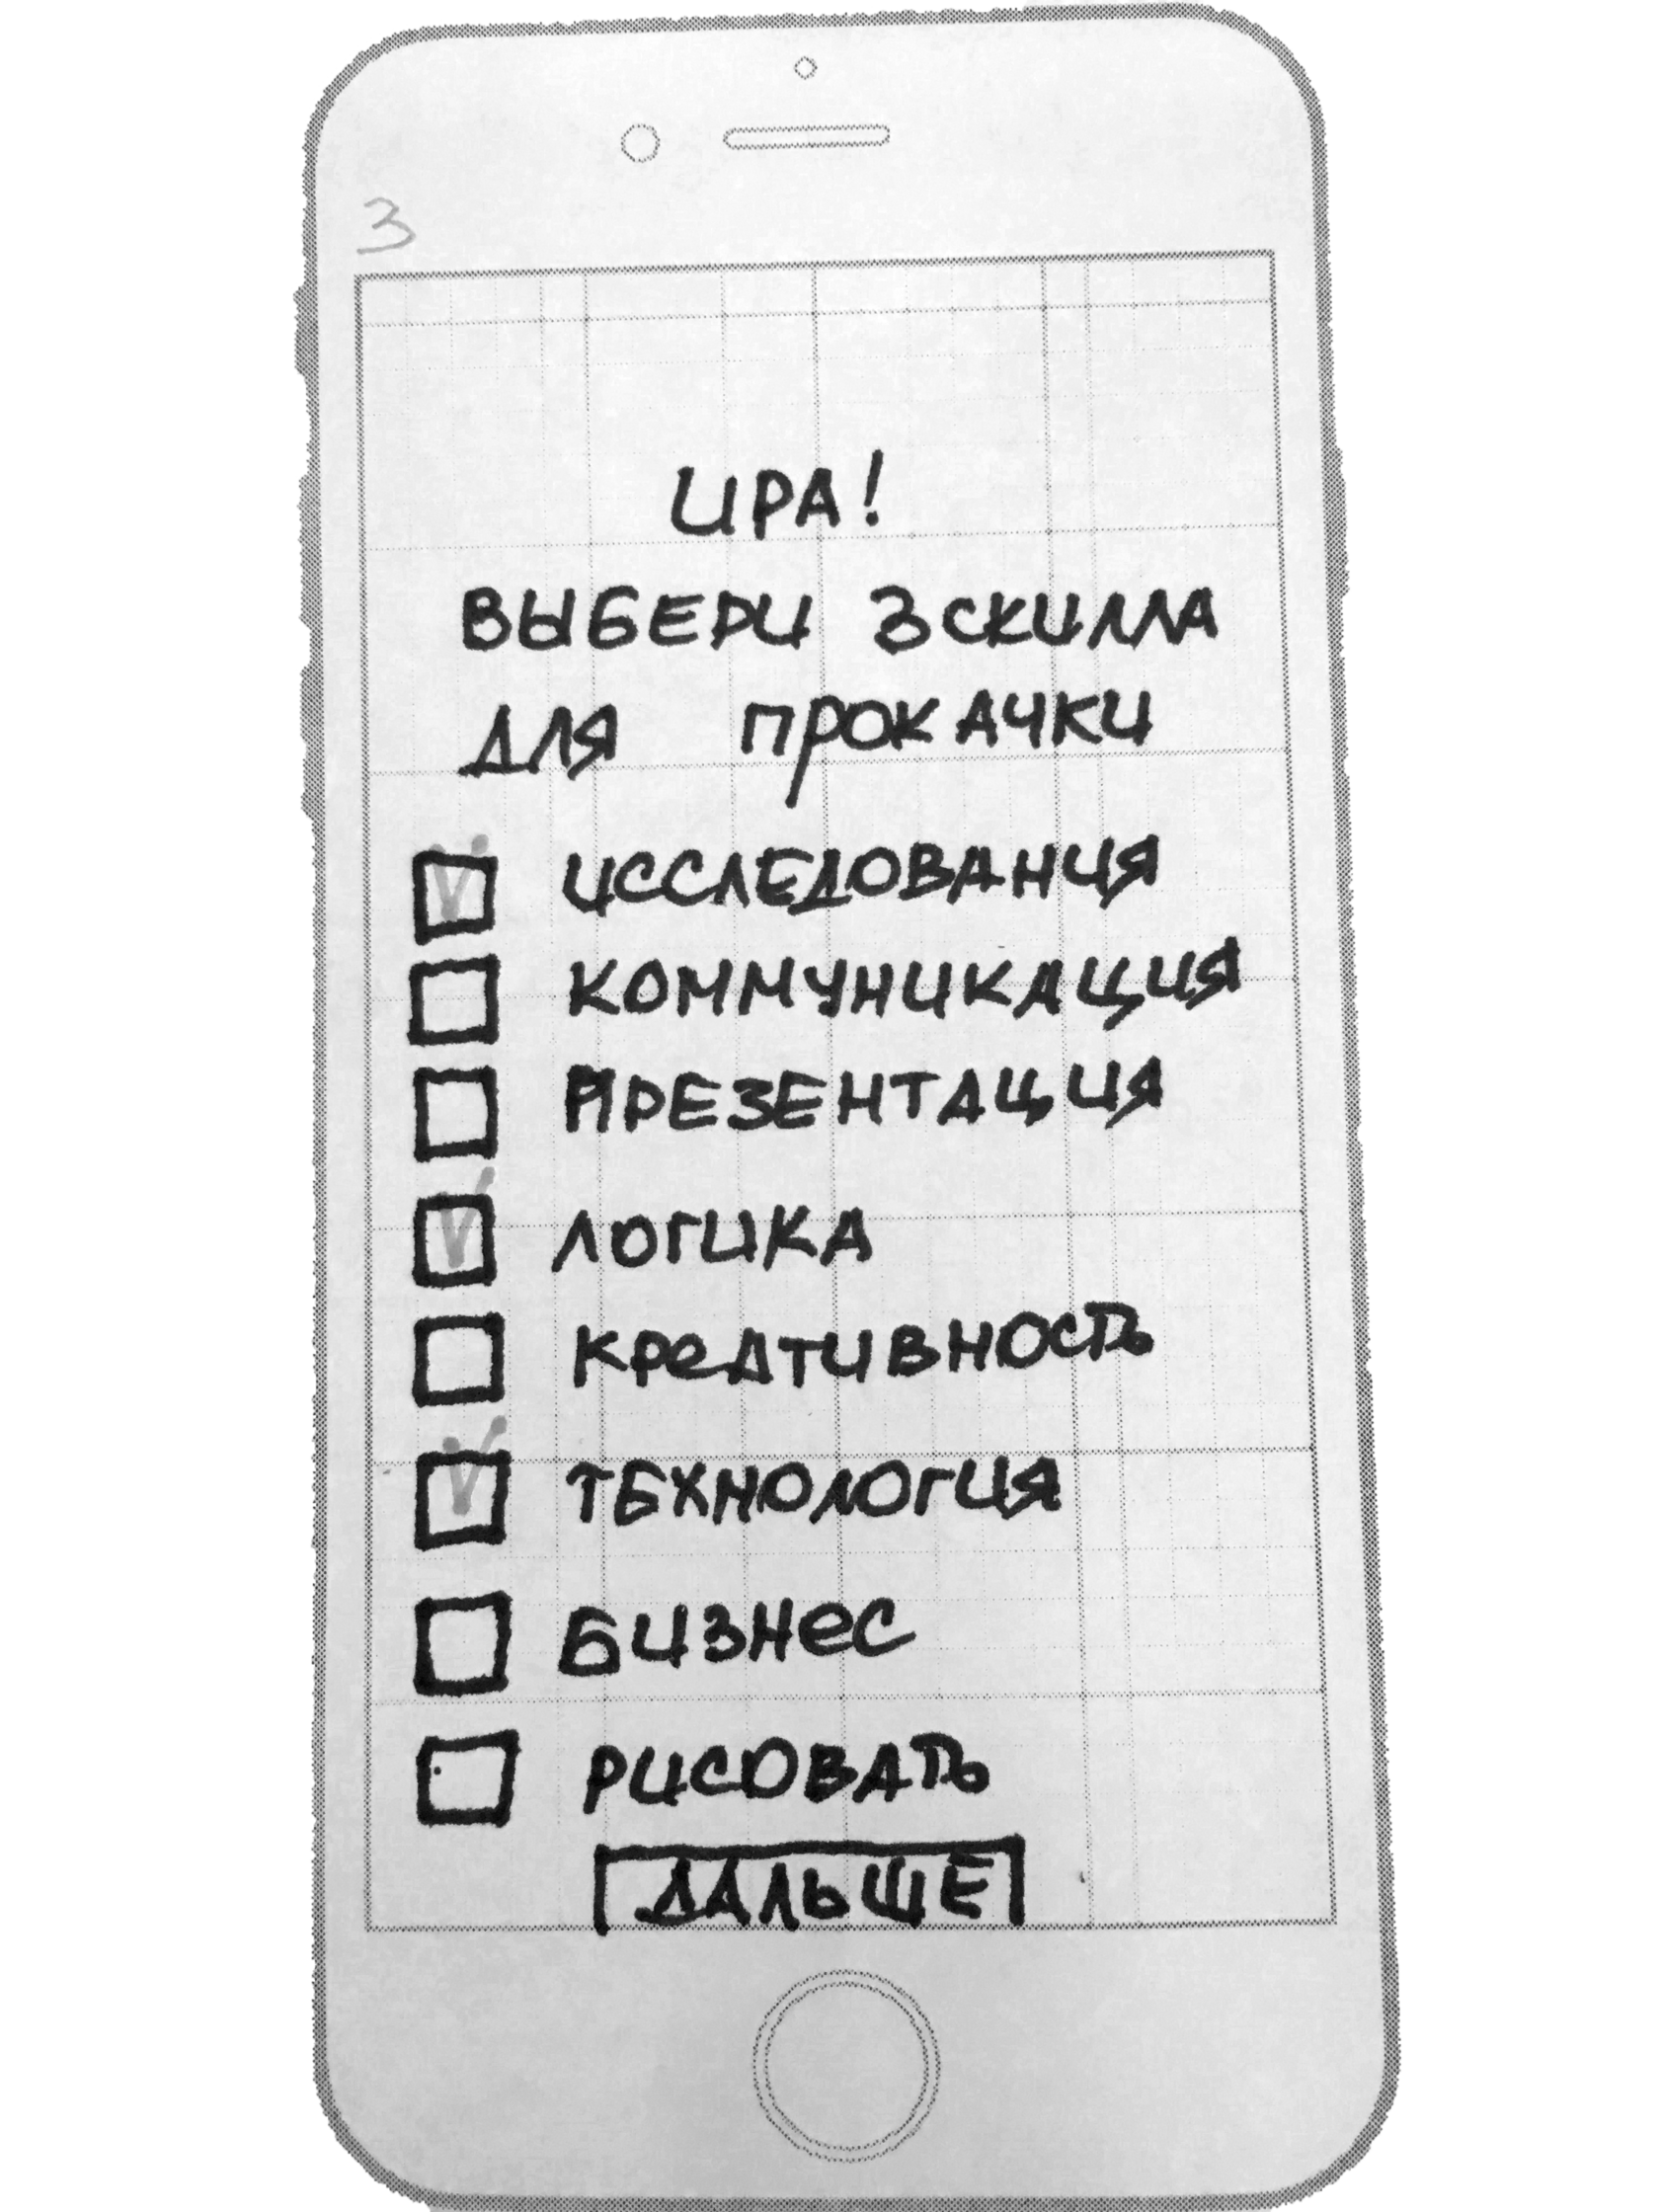 3
ИРА!
ВЫБЕРИ 3 СКИЛЛА
ДЛЯ ПРОКАЧКИ
ИССЛЕДОВАНИЯ
КОММУНИКАЦИЯ
ПРЕЗЕНТАЦИЯ
ЛОГИКА
КРеАТИВНОСТЬ
ТЕХНОЛОГИЯ
БИЗНеС
РИСОВАТЬ
ДАЛЬШЕ